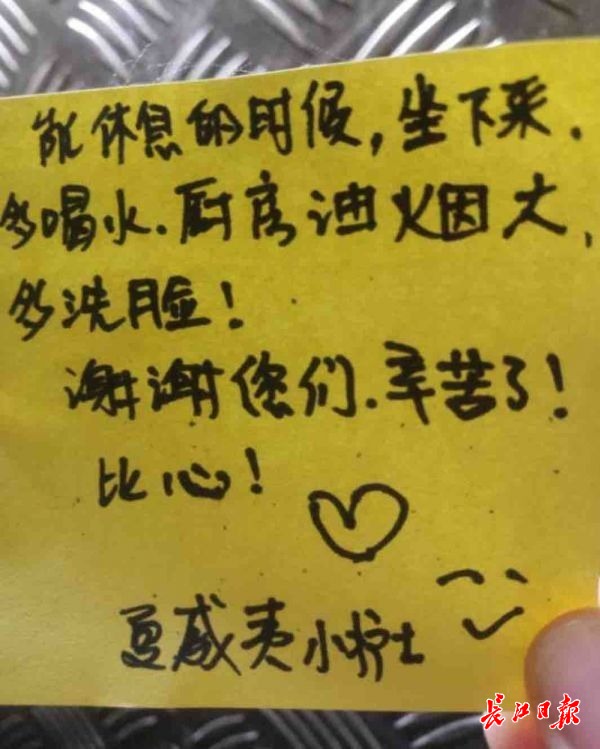 能休息的时候,坐下来.
多喝水.厨房油烟大,
多洗脸!
谢谢您们.辛苦了!
比心!
夏威夷小护士
长江日报